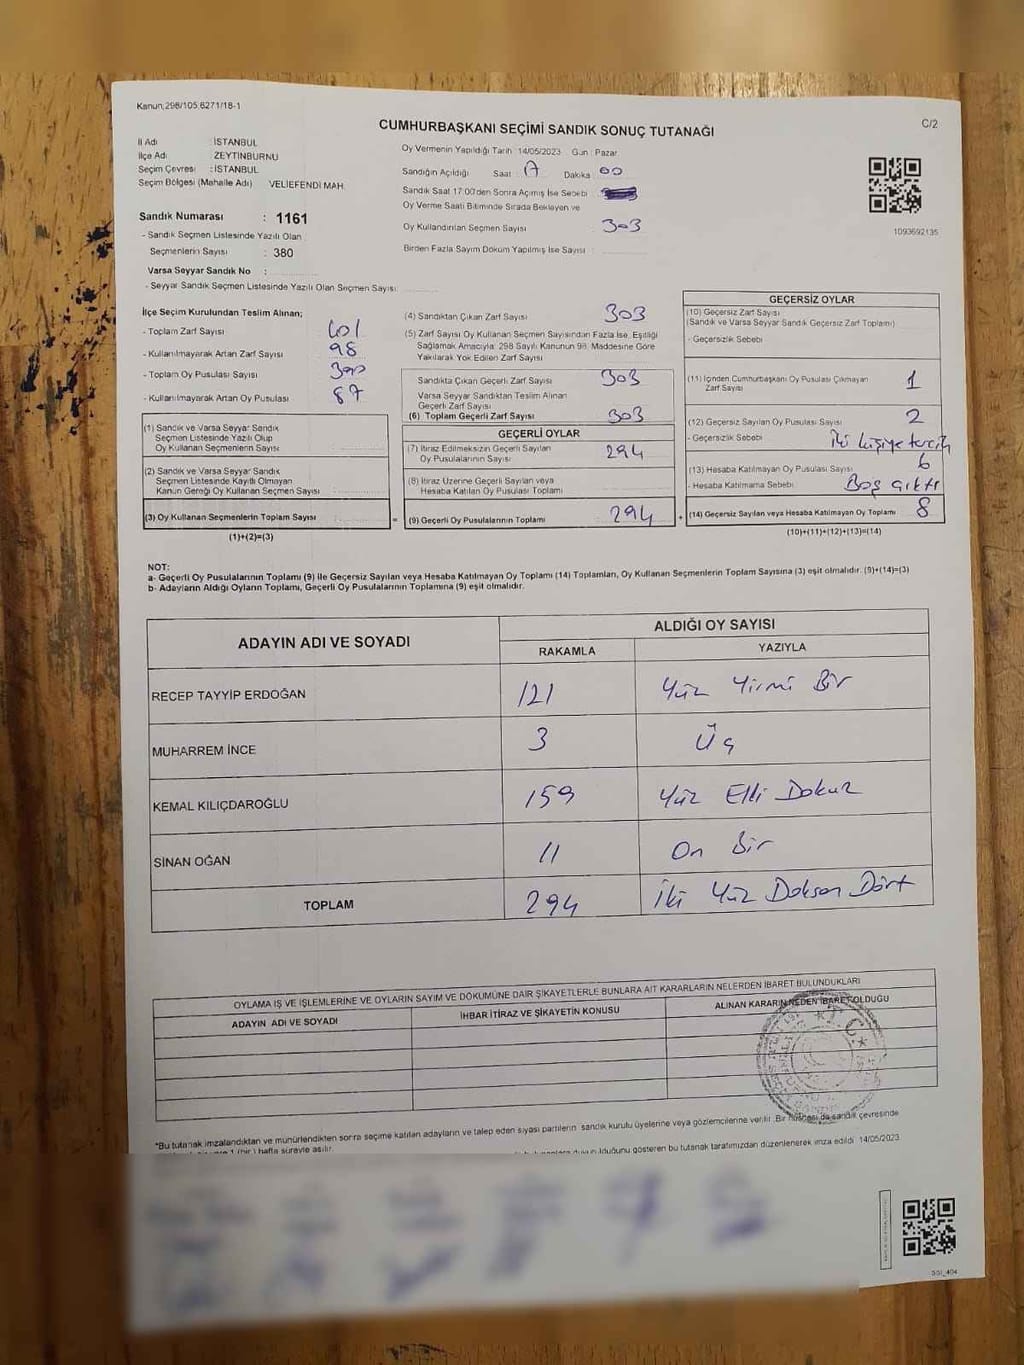 Kanun;298/105;6271/18-1
C/2
CUMHURBAŞKANI SEÇİMİ SANDIK SONUÇ TUTANAĞI
İl Adı : İSTANBUL
İlçe Adı : ZEYTİNBURNU
Seçim Çevresi : İSTANBUL
Seçim Bölgesi (Mahalle Adı) VELİEFENDİ MAH.
Sandık Numarası : 1161
- Sandık Seçmen Listesinde Yazılı Olan
Seçmenlerin Sayısı : 380
Varsa Seyyar Sandık No :
- Seyyar Sandık Seçmen Listesinde Yazılı Olan Seçmen Sayısı:
Oy Vermenin Yapıldığı Tarih : 14/05/2023 Gün : Pazar
Sandığın Açıldığı Saat : 17 Dakika 00
Sandık Saat 17:00'den Sonra Açımış İse Sebebi
Oy Verme Saati Bitiminde Sırada Bekleyen ve
Oy Kullandırılan Seçmen Sayısı 303
Birden Fazla Sayım Döküm Yapılmış İse Sayısı :
1093692135
İlçe Seçim Kurulundan Teslim Alınan;
- Toplam Zarf Sayısı 401
- Kullanılmayarak Artan Zarf Sayısı 98
- Toplam Oy Pusulası Sayısı 390
- Kullanılmayarak Artan Oy Pusulası 87
(1) Sandık ve Varsa Seyyar Sandık
Seçmen Listesinde Yazılı Olup
Oy Kullanan Seçmenlerin Sayısı
(2) Sandık ve Varsa Seyyar Sandık
Seçmen Listesinde Kayıtlı Olmayan
Kanun Gereği Oy Kullanan Seçmen Sayısı
(3) Oy Kullanan Seçmenlerin Toplam Sayısı
(1)+(2)=(3)
=
(4) Sandıktan Çıkan Zarf Sayısı 303
(5) Zarf Sayısı Oy Kullanan Seçmen Sayısından Fazla İse, Eşitliği
Sağlamak Amacıyla; 298 Sayılı Kanunun 98. Maddesine Göre
Yakılarak Yok Edilen Zarf Sayısı
Sandıkta Çıkan Geçerli Zarf Sayısı 303
Varsa Seyyar Sandıktan Teslim Alınan
Geçerli Zarf Sayısı
(6) Toplam Geçerli Zarf Sayısı 303
GEÇERLİ OYLAR
(7) İtiraz Edilmeksizin Geçerli Sayılan
Oy Pusulalarının Sayısı 294
(8) İtiraz Üzerine Geçerli Sayılan veya
Hesaba Katılan Oy Pusulası Toplamı
(9) Geçerli Oy Pusulalarının Toplamı 294
+
GEÇERSİZ OYLAR
(10) Geçersiz Zarf Sayısı
(Sandık ve Varsa Seyyar Sandık Geçersiz Zarf Toplamı)
- Geçersizlik Sebebi
(11) İçinden Cumhurbaşkanı Oy Pusulası Çıkmayan
Zarf Sayısı 1
(12) Geçersiz Sayılan Oy Pusulası Sayısı 2
- Geçersizlik Sebebi İki kişiye tercih
(13) Hesaba Katılmayan Oy Pusulası Sayısı 6
- Hesaba Katılmama Sebebi: Boş çıktı
(14) Geçersiz Sayılan veya Hesaba Katılmayan Oy Toplamı 8
(10)+(11)+(12)+(13)=(14)
NOT:
a- Geçerli Oy Pusulalarının Toplamı (9) ile Geçersiz Sayılan veya Hesaba Katılmayan Oy Toplamı (14) Toplamları, Oy Kullanan Seçmenlerin Toplam Sayısına (3) eşit olmalıdır. (9)+(14)=(3)
b- Adayların Aldığı Oyların Toplamı, Geçerli Oy Pusulalarının Toplamına (9) eşit olmalıdır.
ADAYIN ADI VE SOYADI
ALDIĞI OY SAYISI
RAKAMLA YAZIYLA
RECEP TAYYİP ERDOĞAN 121 Yüz Yirmi Bir
MUHARREM İNCE 3 Üç
KEMAL KILIÇDAROĞLU 159 Yüz Elli Dokuz
SİNAN OĞAN 11 On Bir
TOPLAM 294 İki Yüz Doksan Dört
OYLAMA İŞ VE İŞLEMLERİNE VE OYLARIN SAYIM VE DÖKÜMÜNE DAİR ŞİKAYETLERLE BUNLARA AİT KARARLARIN NELERDEN İBARET BULUNDUKLARI
ADAYIN ADI VE SOYADI İHBAR İTİRAZ VE ŞİKAYETİN KONUSU ALINAN KARARIN NEDEN İBARET OLDUĞU
T.C.
*Bu tutanak imzalandıktan ve mühürlendikten sonra seçime katılan adayların ve talep eden siyasi partilerin sandık kurulu üyelerine veya gözlemcilerine verilir. Bir nüshası da sandık çevresinde
1 (bir) hafta süreyle asılır.
olduğunu gösteren bu tutanak tarafımızdan düzenlenerek imza edildi. 14/05/2023